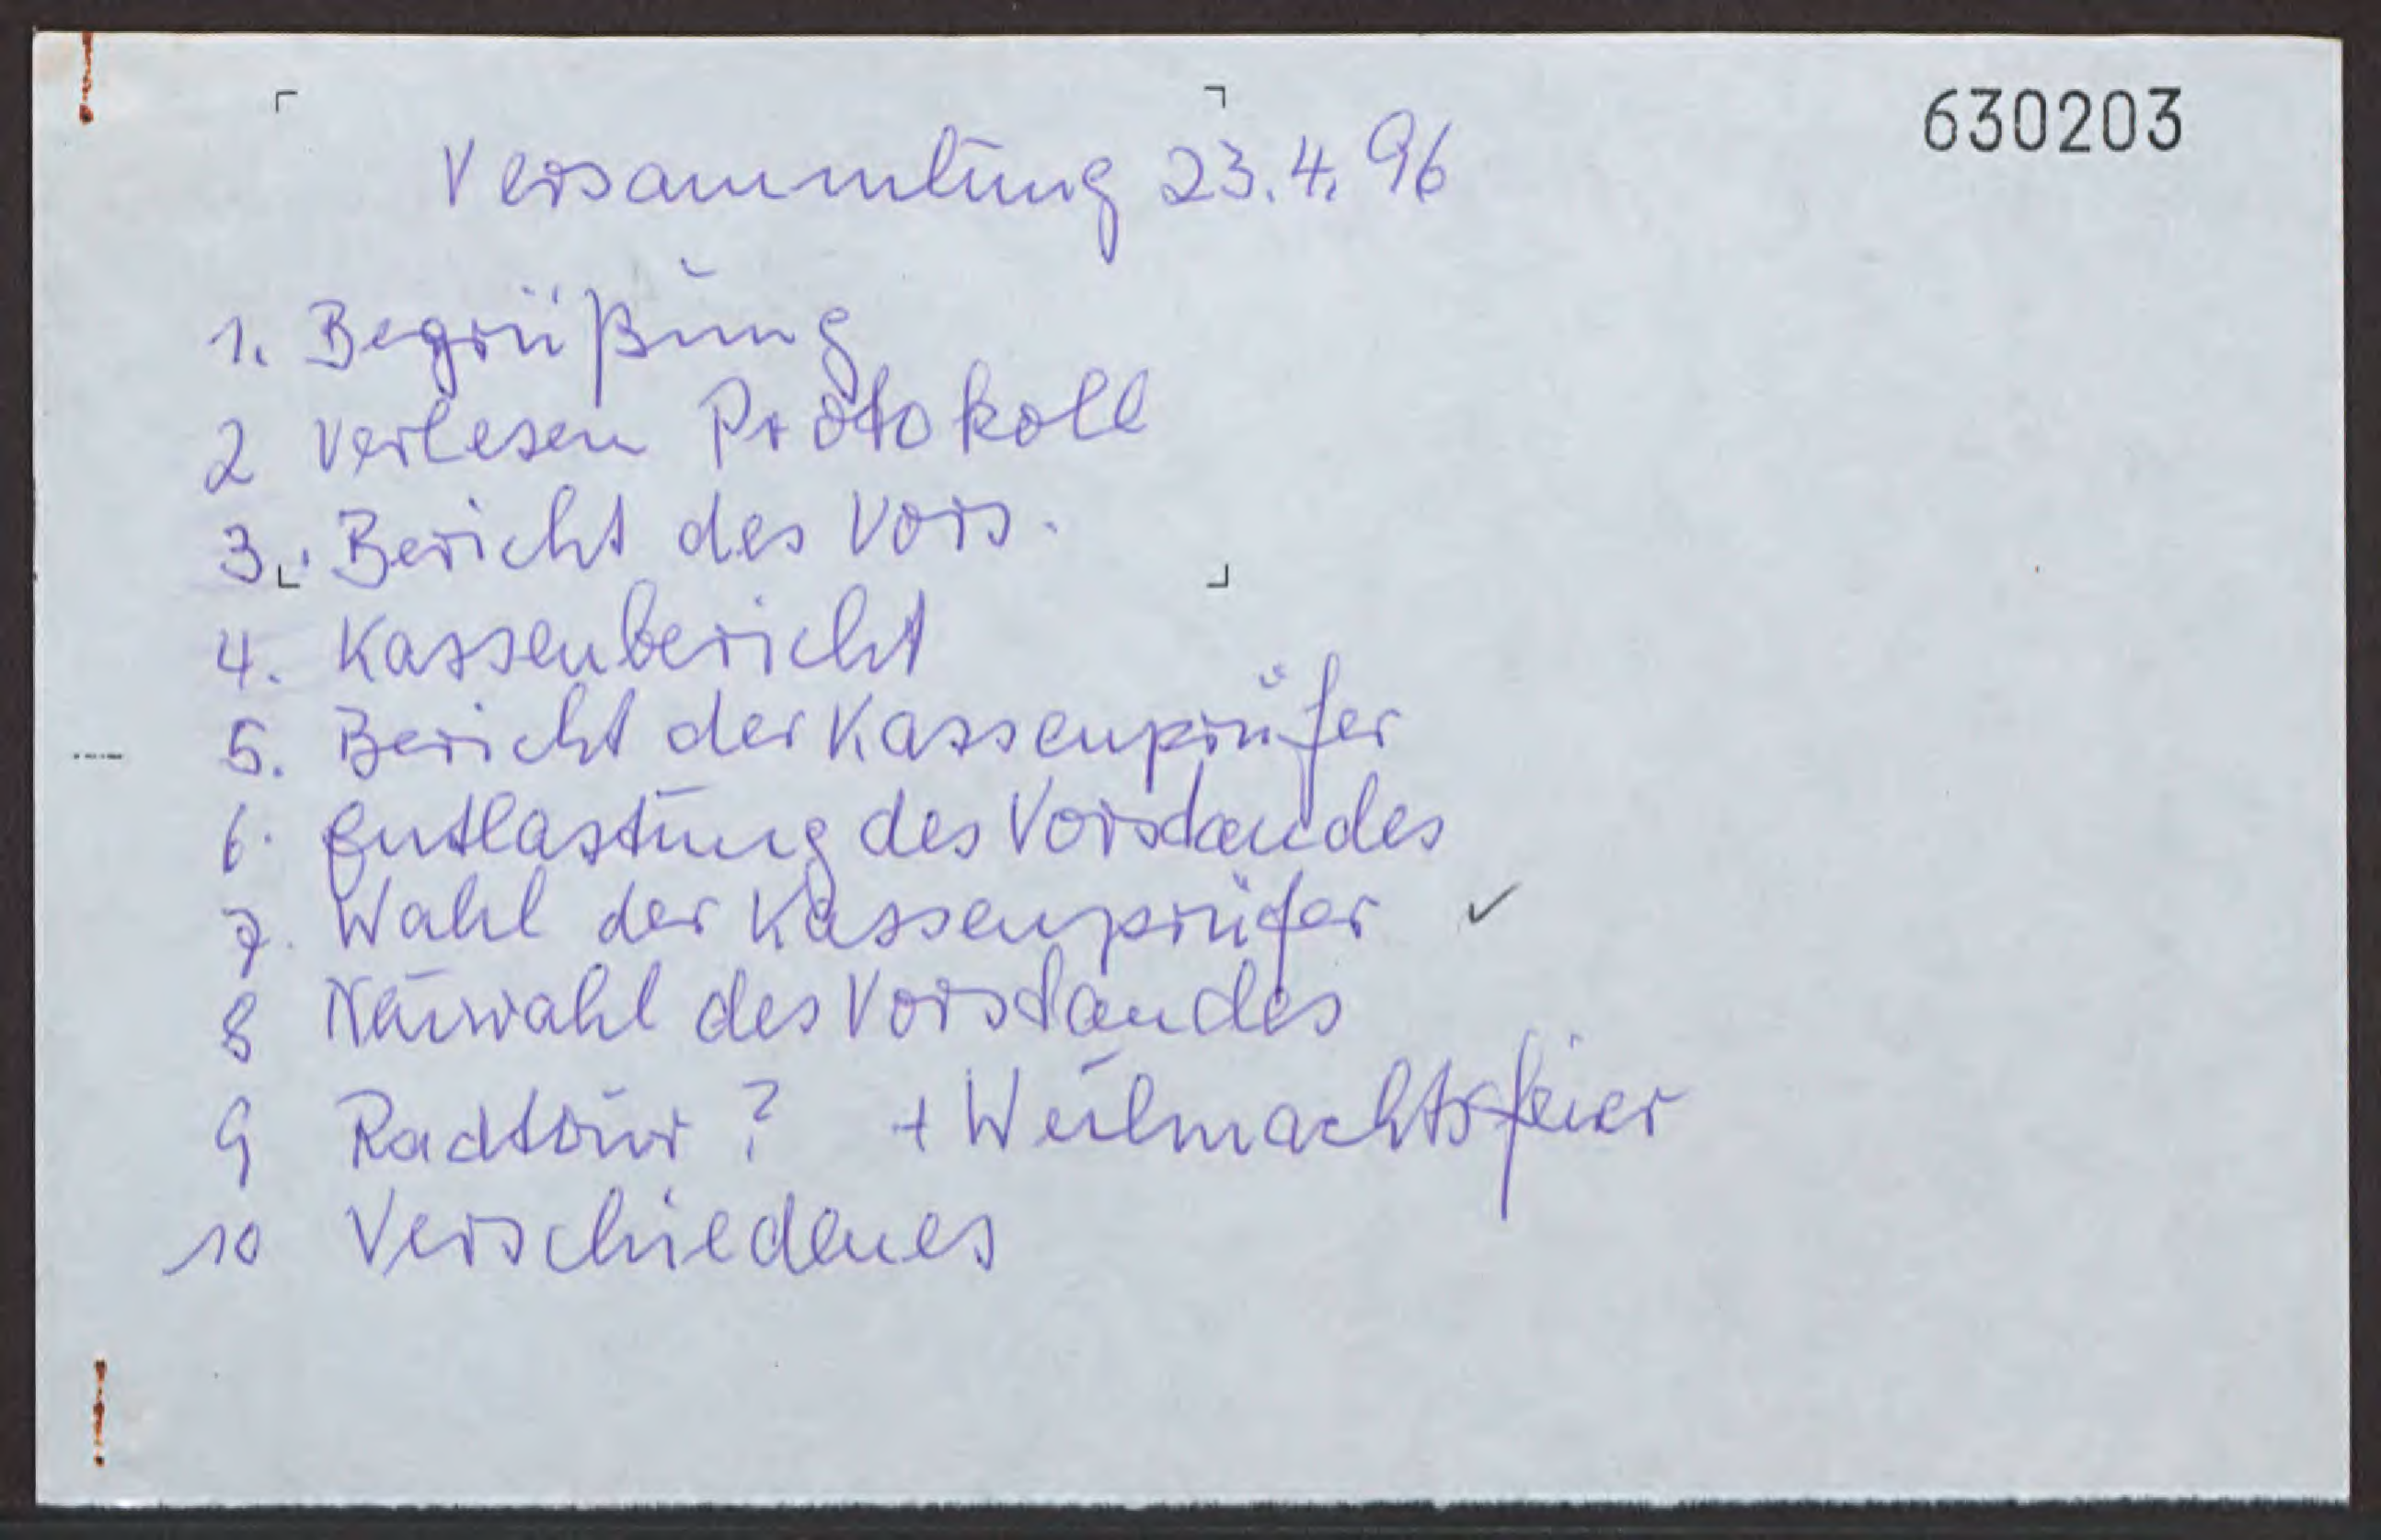 630203
Versammlung 23.4.96
1. Begrüßung
2 Verlesen Protokoll
3. Bericht des Vors.
4. Kassenbericht
5. Bericht der Kassenprüfer
6. Entlastung des Vorstandes
7. Wahl der Kassenprüfer ✓
8 Neuwahl des Vorstandes
9 Radtour? + Weihnachtsfeier
10 Verschiedenes